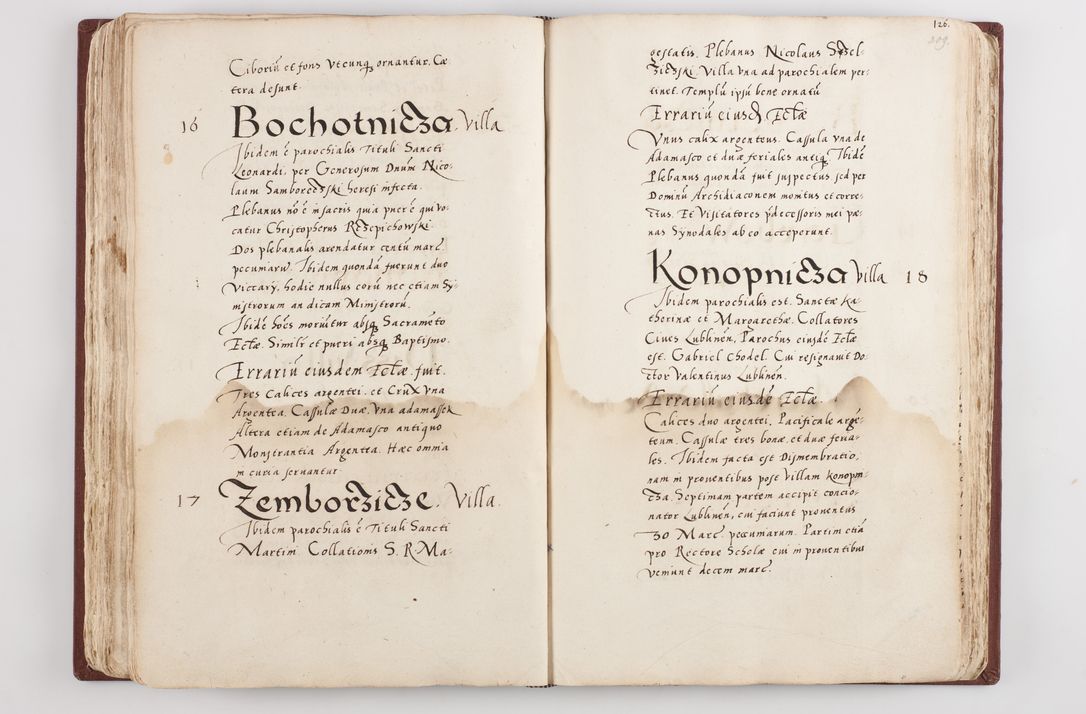 Ciboriũ et fons Vtcunq ornantur. Cæ
tera desunt.
16 Bochotnicza. Villa
Ibidem ẽ parochialis Tituli Sancti
Leonardi, per Generosum Dnũm Nico-
laum Samborzeczski heresi infecta.
Plebanus nõ ẽ in sacris quia puer ẽ qui vo-
catur Christopherus Rzepichowski.
Dos plebanalis arendatur centũ marc.
pecuniarũ. Ibidem quondã fuerunt duo
Viccary, hodie nullus corũ nec etiam Sy-
nistrorum an dicam Ministrorũ.
Ibidẽ hoẽs moriũtur absq Sacramẽto
Ecłæ. Similr et pueri absq Baptismo.
Errariũ eiusdem Ecłæ. fuit.
Tres Calices argentei. et Crux vna
Argentea. Cassulæ Duæ, vna adamassek
Altera etiam de Adamasco antiquo
Monstrantia Argentea. Hæc omnia
in curia seruantur
17 Zemborzicze. Villa.
Ibidem parochialis ẽ Tituli Sancti
Martini Collationis S. R. Ma-
126.
209.
gestatis. Plebanus Nicolaus
Villa vna ad parochialem per-
tinet. Templũ ipsũ bene ornatũ
Errariũ eiusd Ecłæ
Vnus calix argenteus. Cassula vna de
Adamasco et duæ feriales antiq. Ibidẽ
Plebanus quondã fuit suspectus sed per
Dominũ Archidiaconem monitus et corre-
ctus. Et Visitatores p̃decessoris mei pæ-
nas Synodales ab eo acceperunt.
Konopnicza Villa 18
Ibidem parochialis est. Sanctæ Ka-
therinæ et Margarethæ. Collatores
Ciues Lublinẽn, Parochus eiusdẽ Ecłæ
est. Gabriel Chodel. Cui resignauit Do-
ctor Valentinus Lublinẽn.
Errariũ eiusdẽ Ecłæ.
Calices duo argentei, Pacificale argẽ-
teum. Cassulæ tres bonæ, et duæ feria-
les. Ibidem facta est Dismembratio,
nam in prouentibus post Villam Konopni-
cza. Septimam partem accipit concio-
nator Lublinẽn, cui faciunt prouentus
30 Marc. pecuniarum. Partim etiã
pro Rectore Scholæ cui in prouentibus
veniunt decem marc.